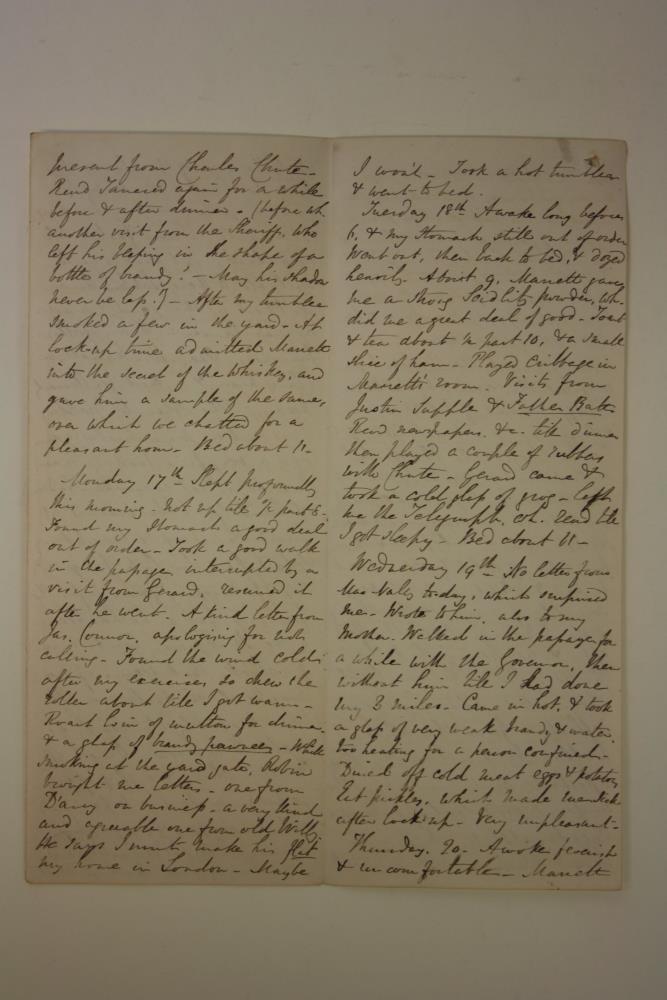 present from Charles Chute -
Read Tancred again for a while
before & after dinner - (before wh.
another visit from the Sheriff, who
left his blessing in the shape of a
bottle of brandy! - May his shadow
never be less!) - After my tumbler
smoked a few in the yard - At
lock-up time admitted Mariett
into the secret of the whiskey, and
gave him a sample of the same,
over which we chatted for a
pleasant hour - Bed about 11 -
Monday 17th Slept profoundly
this morning - not up till ½ past 8 -
Found my stomach a good deal
out of order - Took a good walk
in the passage, interrupted by a
visit from Gerard, resumed it
after he went. A kind letter from
Jas. Connor, apologising for not
calling - Found the wind cold
after my exercise, so drew the
roller about till I got warm -
Roast loin of mutton for dinner
& a glass of brandy pawnee - While
smoking at the yard gate, Robin
brought me letters - one from
D'Arcy on business - a very kind
and agreeable one from old Wills,
He says I must make his flat
my home in London - Maybe
I won't - Took a hot tumbler
& went to bed.
Tuesday 18th Awake long before
6, & my stomach still out of order
Went out, then back to bed, & dozed
heavily. About 9, Mariett gave
me a strong Seidlitz powder, wh.
did me a great deal of good - Toast
& tea about ½ past 10, & a small
slice of ham - Played Cribbage in
Mariett's room. Visits from
Justin Supple & Father Bat
Read newspapers &c. till dinner
then played a couple of rubbers
with Chute - Gerard came &
took a cold glass of grog - left
me the Telegraph, wh. read till
I got sleepy - Bed about 11 -
Wednesday 19th No letter from
to-day, which surprised
me - Wrote to him, also to my
Mother - Walked in the passage for
a while with the Governor, then
without him till I had done
my 3 miles - Came in hot, & took
a glass of very weak brandy & water,
too heating for a person confined -
Dined off cold meat eggs & potatoes,
Eat pickles, which made me sick
after lock-up - Very unpleasant -
Thursday. 20 - Awoke feverish
& uncomfortable - Mariett